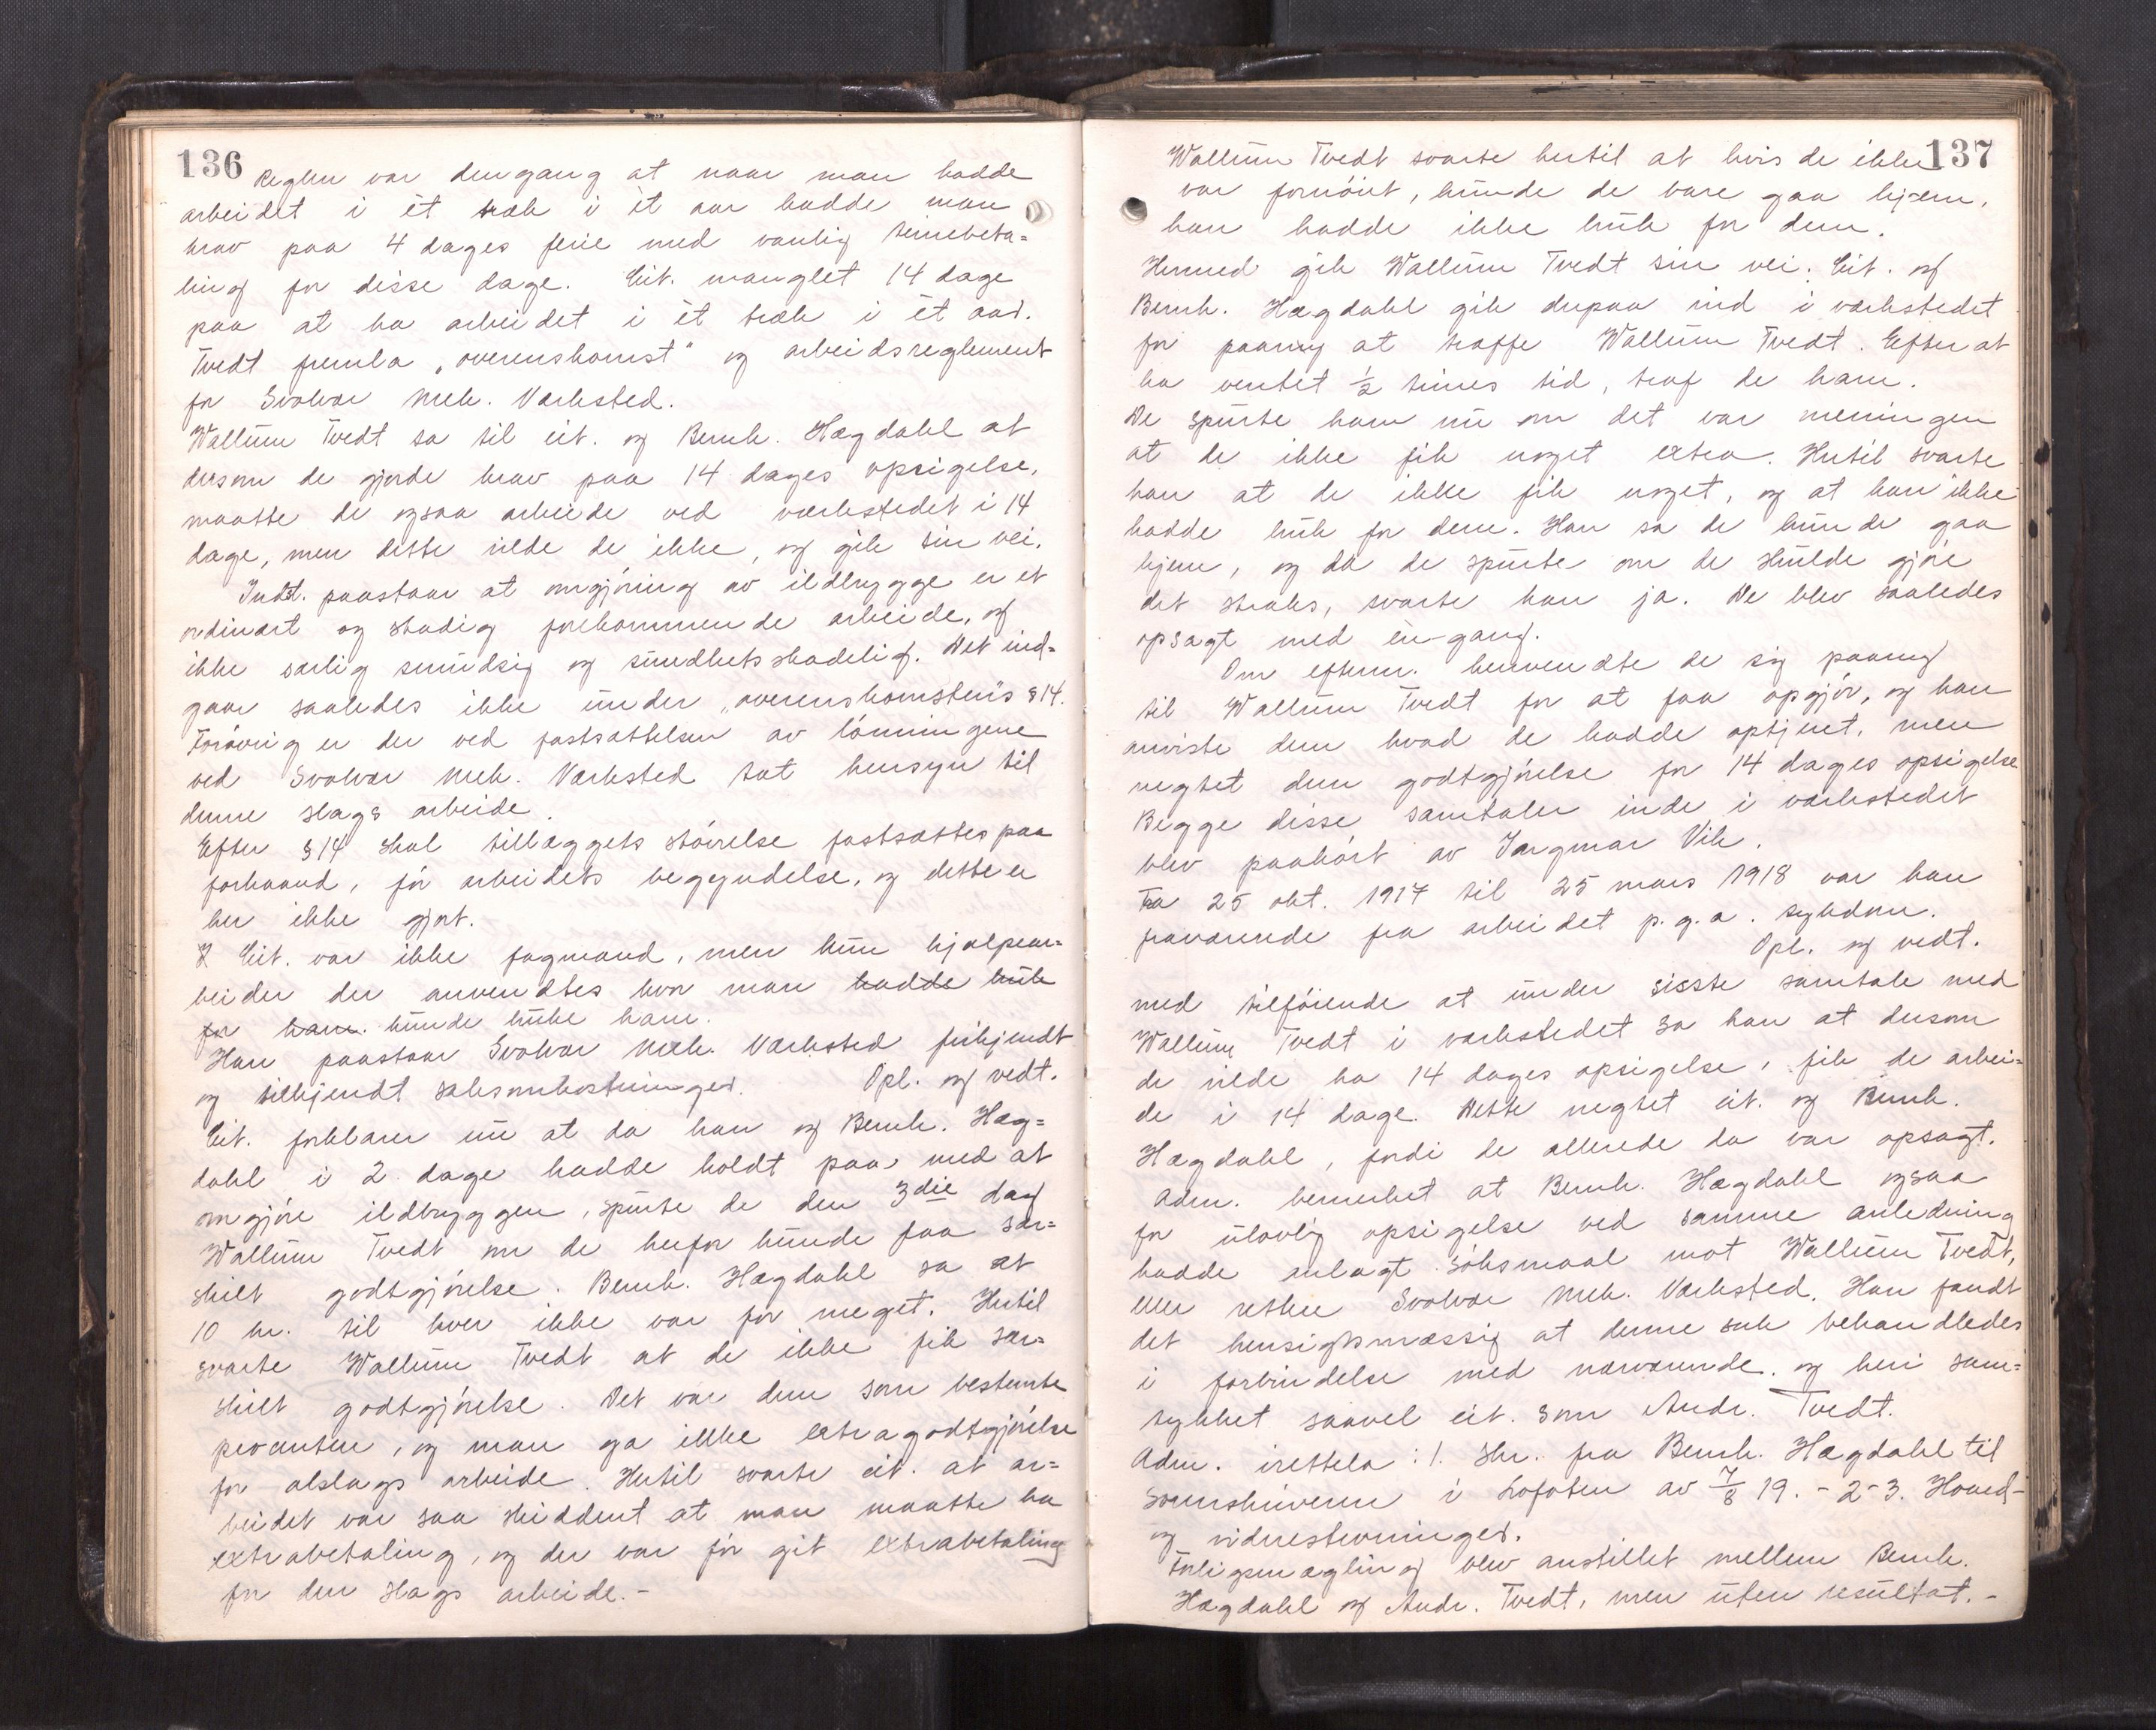 136
Reglen var dengang at naar man hadde
arbeidet i ét træk i ét aar hadde man
krav paa 4 dages ferie med vanlig timebeta=
ling for disse dage. Cit. manglet 14 dage
paa at ha arbeidet i ét træk i ét aar.
Tvedt fremla „overenskomst" og arbeidsreglement
for Svolvær mek. Værksted.
Wallum Tvedt sa til cit. og Bernh. Hægdahl at
dersom de gjorde krav paa 14 dages opsigelse,
maatte de ogsaa arbeide ved værkstedet i 14
dage, men dette vilde de ikke, og gik sin vei.
Indst. paastaar at omgjøring av ildbrygge er et
ordinært og stadig forekommende arbeide, og
ikke særlig smudsig og sundhetsskadelig. Det ind=
gaar saaledes ikke under „overenskomsten"s § 14.
Forøvrig er der ved fastsættelsen av lønningene
ved Svolvær mek. Værksted tat hensyn til
denne slags arbeide.
Efter § 14 skal tillæggets størrelse fastsættes paa
forhaand, før arbeidets begyndelse, og dette er
her ikke gjort.
Cit. var ikke fagmand, men kun hjælpear=
beider der anvendtes hvor man hadde bruk
for ham. kunde bruke ham.
Han paastaar Svolvær mek. Værksted frikjendt
og tilkjendt saksomkostninger. Opl. og vedt.
Cit. forklarer nu at da han og Bernh. Hæg=
dahl i 2 dage hadde holdt paa med at
omgjøre ildbryggen, spurte de den 3die dag
Wallum Tvedt om de herfor kunde faa sær=
skilt godtgjørelse. Bernh. Hægdahl sa at
10 kr. til hver ikke var for meget. Hertil
svarte Wallum Tvedt at de ikke fik sær=
skilt godtgjørelse. Det var dem som bestemte
prosenten, og man ga ikke extragodtgjørelse
for alslags arbeide. Hertil svarte cit. at ar=
beidet var saa skiddent at man maatte ha
extrabetaling, og der var før git extrabetaling
for den slags arbeide.-
137
Wallum Tvedt svarte hertil at hvis de ikke
var fornøiet, kunde de bare gaa hjem,
han hadde ikke bruk for dem.
Hermed gik Wallum Tvedt sin vei. Cit. og
Bernh. Hægdahl gik derpaa ind i værkstedet
for paany at træffe Wallum Tvedt. Efter at
ha ventet ½ times tid, traf de ham.
De spurte ham nu om det var meningen
at de ikke fik noget extra. Hertil svarte
han at de ikke fik noget, og at han ikke
hadde bruk for dem. Han sa de kunde gaa
hjem, og da de spurte om de skulde gjøre
det straks, svarte han ja. De blev saaledes
opsagt med én-gang.
Om efterm. henvendte de sig paany
til Wallum Tvedt for at faa opgjør, og han
anviste dem hvad de hadde optjent, men
negtet dem godtgjørelse for 14 dages opsigelse
Begge disse samtaler inde i værkstedet
blev paahørt av Ingmar Vik.
Fra 25 okt. 1917 til 25 mars 1918 var han
fraværende fra arbeidet p.g.a. sykdom.
Opl. og vedt.
med tilføiende at under sisste samtale med
Wallum Tvedt i værkstedet sa han at dersom
de vilde ha 14 dages opsigelse, fik de arbei=
de i 14 dage. Dette negtet cit. og Bernh.
Hægdahl, fordi de allerede da var opsagt.
Adm. bemerket at Bernh. Hægdahl ogsaa
for ulovlig opsigelse ved samme anledning
hadde anlagt søksmaal mot Wallum Tvedt,
eller rettere Svolvær mek. Værksted. Han fandt
det hensigtsmæssig at denne sak behandledes
i forbindelse med nærværende. og heri sam=
tykket saavel cit. som Andr. Tvedt.
Adm. irettela: 1. Skr. fra Bernh. Hægdahl til
sorenskriveren i Lofoten av 7/8 19. - 2-3. Hoved-
og vidnestevninger.
Forligsmægling blev anstillet mellem Bernh.
Hægdahl og Andr. Tvedt, men uten resultat.-